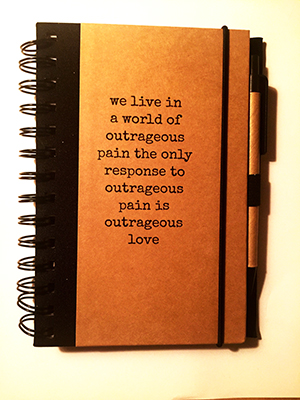 we live in
a world of
outrageous
pain the only
response to
outrageous
pain is
outrageous
love